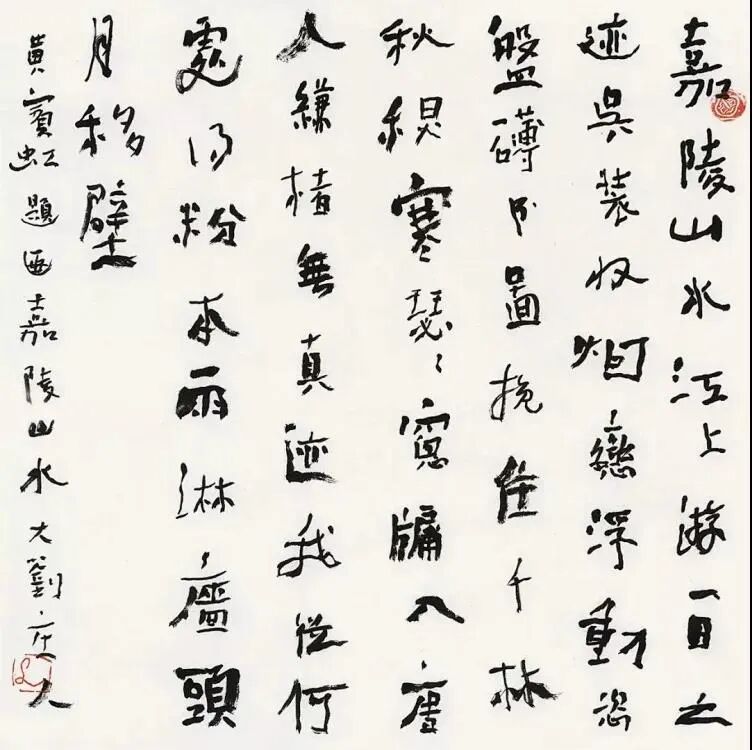 嘉陵山水江上游一日之
迹吳装收烟巒浮動恣
盤礴圖挽住千林
秋榥寒瑟〻窻牖入唐
人縑楮無真迹我從何
處得粉本雨淋廧頭
月移壁
黃賓虹題画嘉陵山水大劉人